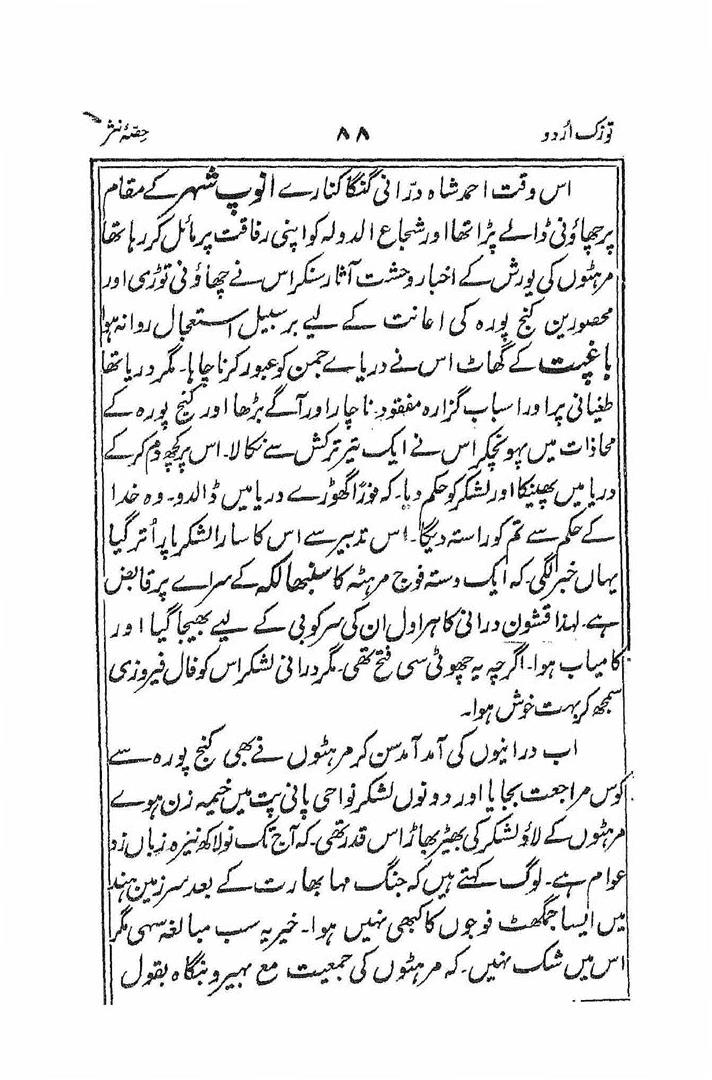 توزک اُردو ۸۸ حصّۂ نثر
اس وقت احمد شاہ درّانی گنگا کنارے انوپ شہر کے مقام
پر چھاؤنی ڈالے پڑا تھا اور شجاع الدولہ کو اپنی رفاقت پر مائل کر رہا تھا
مرہٹوں کی یورش کے اخبار وحشت آثار سنکر اس نے چھاؤنی توڑی اور
محصورین کنج پورہ کی اعانت کے لیے بر سبیل استعجال روانہ ہوا
باغپت کے گھاٹ اس نے دریاے جمن کو عبور کرنا چاہا۔ مگر دریا تھا
طغیانی پر اور اسباب گزارہ مفقود۔ ناچار اور آگے بڑھا اور کنج پورہ کے
محاذات میں پہونچکر اس نے ایک تیر ترکش سے نکالا۔ اس پر کچھ دم کر کے
دریا میں پھینکا اور لشکر کو حکم دیا۔ کہ فوراً گھوڑے دریا میں ڈالدو۔ وہ خدا
کے حکم سے تم کو راستہ دیگا۔ اس تدبیر سے اس کا سارا لشکر پار اُتر گیا
یہاں خبر لگی۔ کہ ایک دستہ فوج مرہٹہ کا سنبھالکہ کے سراے پر قابض
ہے۔ لہذا قشون درانی کا ہراول ان کی سرکوبی کے لیے بھیجا گیا اور
کامیاب ہوا۔ اگرچہ یہ چھوٹی سی فتح تھی۔ مگر درانی لشکر اس کو فال فیروزی
سمجھ کر بہت خوش ہوا۔
اب درانیوں کی آمد آمد سن کر مرہٹوں نے بھی کنج پورہ سے
کوس مراجعت بجایا اور دونوں لشکر نواحی پانی پت میں خیمہ زن ہوے
مرہٹوں کے لاؤ لشکر کی بھیڑ بھاڑ اس قدر تھی۔ کہ آج تک نو لاکھ نیزہ زباں زد
عوام ہے۔ لوگ کہتے ہیں کہ جنگ مہا بھارت کے بعد سرزمین ہند
میں ایسا جمگھٹ فوجوں کا کبھی نہیں ہوا۔ خیر یہ سب مبالغہ سہی مگر
اس میں شک نہیں۔ کہ مرہٹوں کی جمعیت مع بہیر و بنگاہ بقول